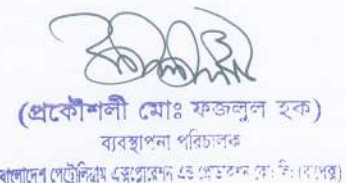 (প্রকৌশলী মোঃ ফজলুল হক)
ব্যবস্থাপনা পরিচালক
বাংলাদেশ পেট্রোলিয়াম এক্সপ্লোরেশন এন্ড প্রোডাকশন কোঃ লিঃ (বাপেক্স)